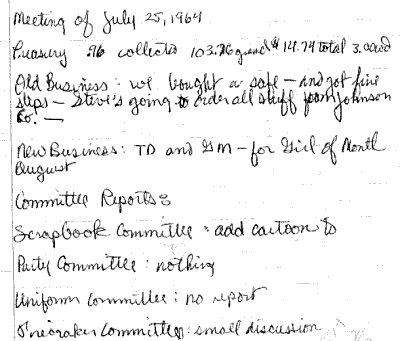 Meeting of July 25, 1964
Treasury .96 collected 103.76 grand $14.74 total 3.00
Old Business: we bought a safe – and got five
slips – Steve's going to order all stuff from Johnson
Co. —
New Business: TD and GM – for Girl of Month
August
Committee Reports:
Scrapbook Committee: add cartoon to
Party Committee: nothing
Uniform Committee: no report
Committee: small discussion